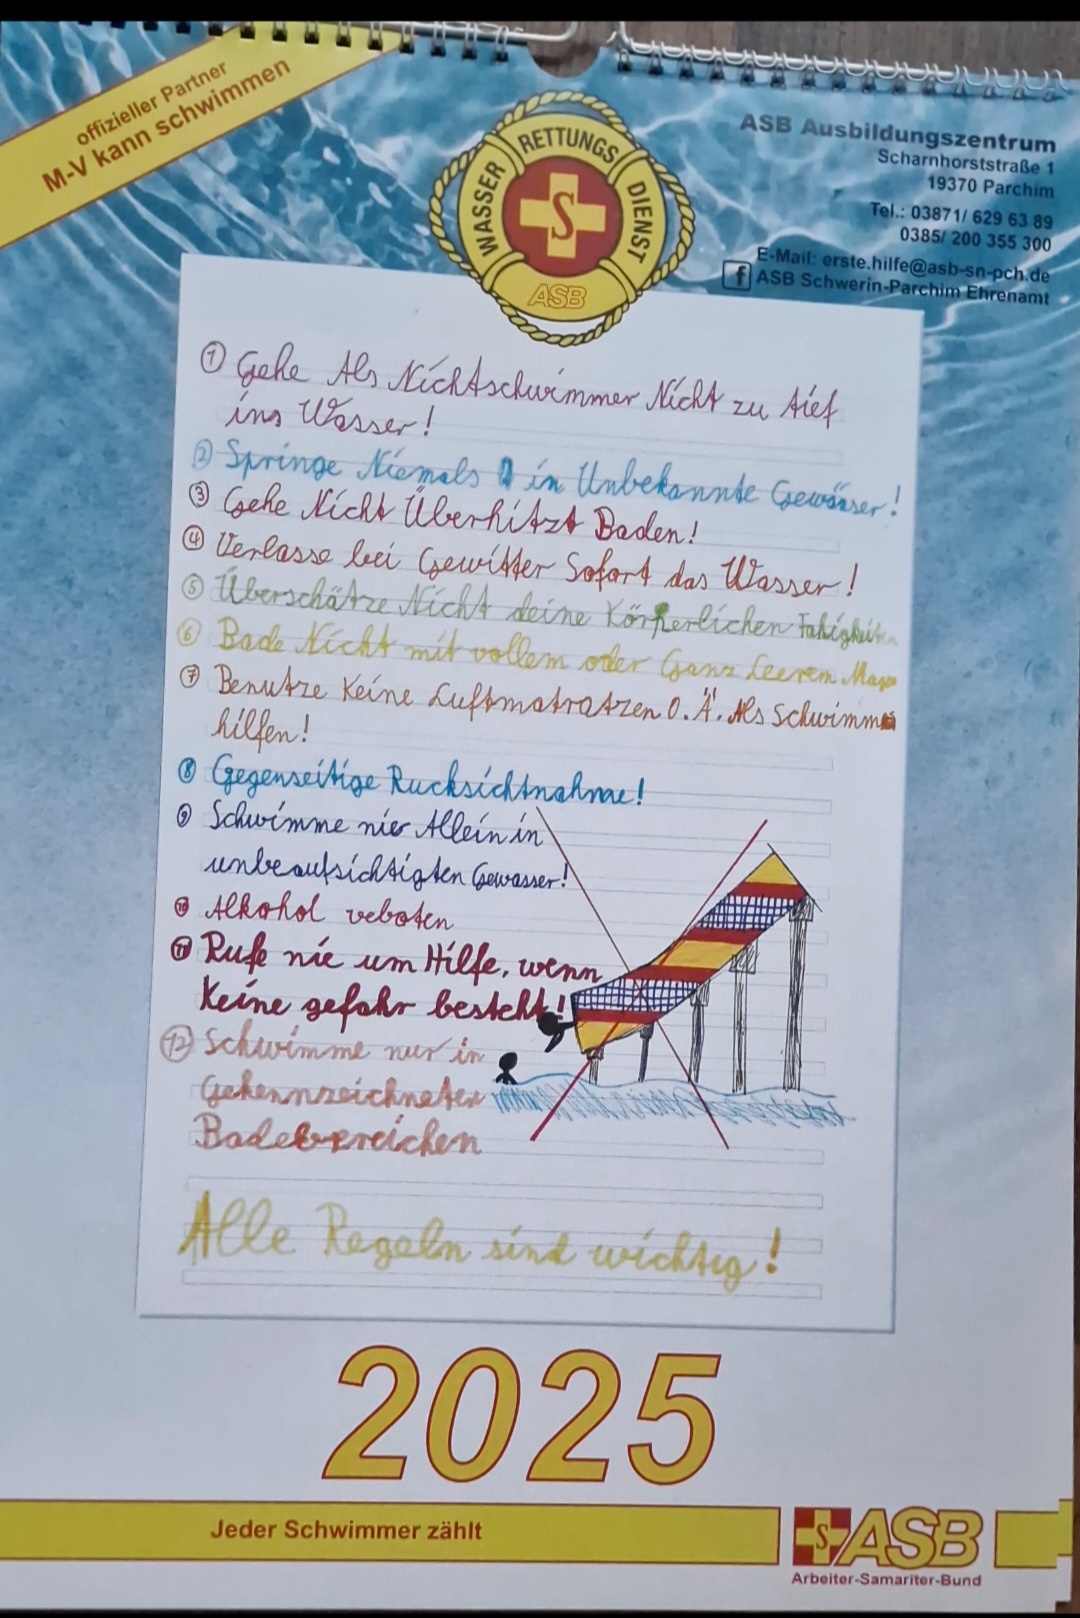 offizieller Partner
M-V kann schwimmen
WASSER RETTUNGS DIENST
S
ASB
ASB Ausbildungszentrum
Scharnhorststraße 1
19370 Parchim
Tel.: 03871/ 629 63 89
0385/ 200 355 300
E-Mail: erste.hilfe@asb-sn-pch.de
f ASB Schwerin-Parchim Ehrenamt
① Gehe Als Nichtschwimmer Nicht zu tief
ins Wasser!
② Springe Niemals in Unbekannte Gewässer!
③ Gehe Nicht Überhitzt Baden!
④ Verlasse bei Gewitter Sofort das Wasser!
⑤ Überschätze Nicht deine Körperlichen Fahigkeiten
⑥ Bade Nicht mit vollem oder Ganz Leerem Magen
⑦ Benutze Keine Luftmatratzen O.Ä. Als Schwimm
hilfen!
⑧ Gegenseitige Rucksichtnahme!
⑨ Schwimme nie Allein in
unbeaufsichtigten Gewasser!
⑩ Alkohol veboten
⑪ Rufe nie um Hilfe, wenn
Keine gefahr besteht!
⑫ Schwimme nur in
Gekennzeichneten
Badebereichen
Alle Regeln sind wichtig!
2025
Jeder Schwimmer zählt
S ASB
Arbeiter-Samariter-Bund